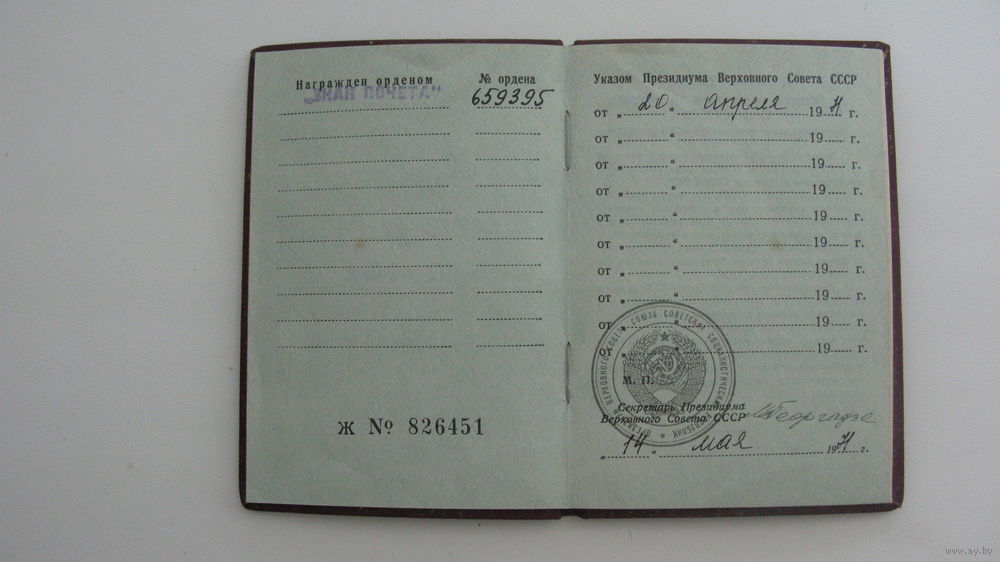 Награжден орденом
№ ордена
„ЗНАК ПОЧЕТА“
659395
Ж № 826451
Указом Президиума Верховного Совета СССР
от „ 20 “ апреля 1971 г.
от „ “ 19 г.
от „ “ 19 г.
от „ “ 19 г.
от „ “ 19 г.
от „ “ 19 г.
от „ “ 19 г.
от „ “ 19 г.
от „ “ 19 г.
от „ “ 19 г.
ПРЕЗИДИУМ ВЕРХОВНОГО СОВЕТА СОЮЗА СОВЕТСКИХ СОЦИАЛИСТИЧЕСКИХ РЕСПУБЛИК
М. П.
Секретарь Президиума
Верховного Совета СССР
МГеоргадзе
„ 14 “ мая 1971 г.
www.ay.by